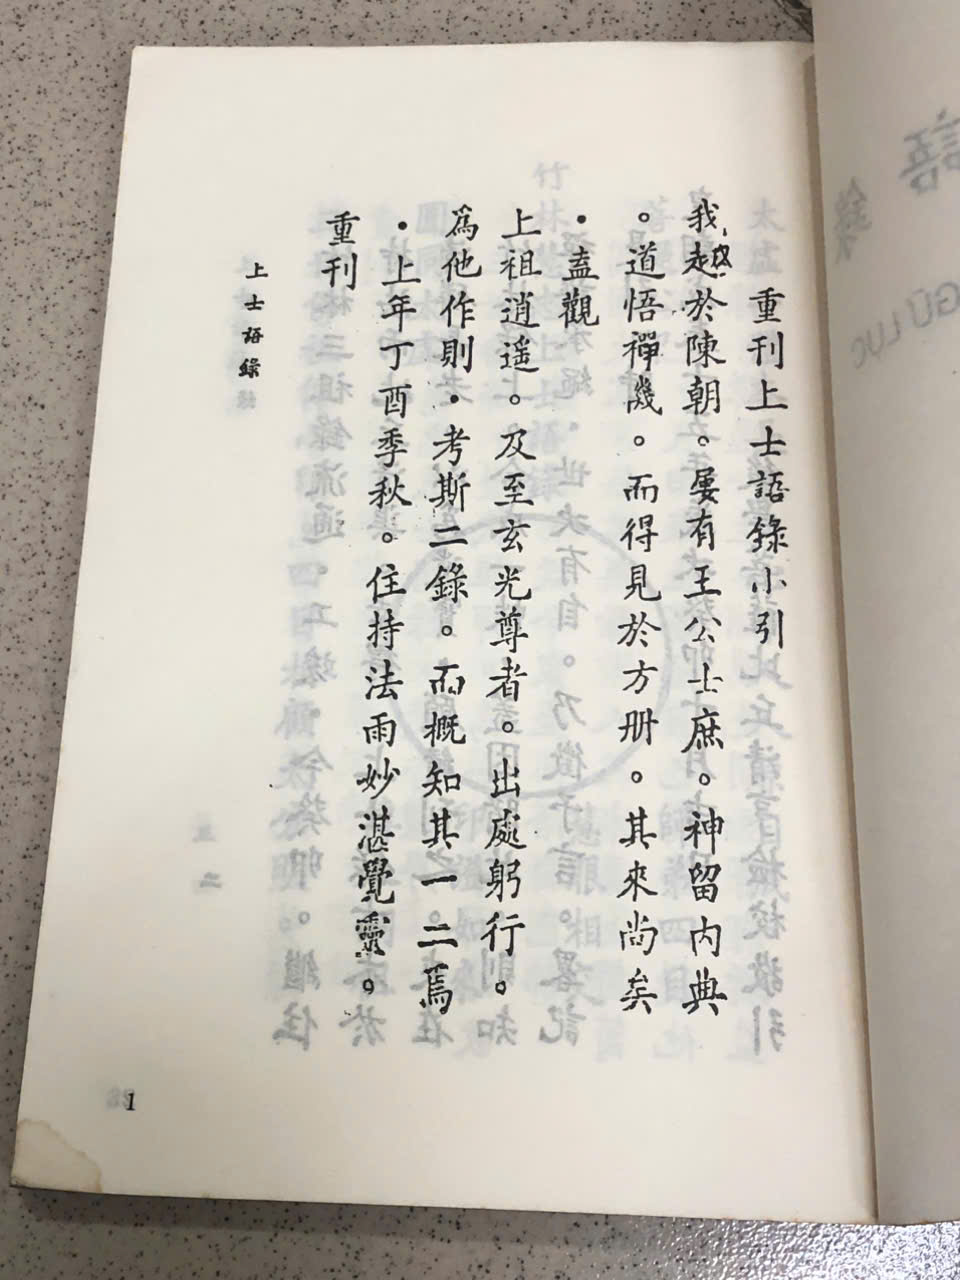 重刊上士語錄小引
我越於陳朝。屡有王公士庶。神留内典
。道悟禪機。而得見於方册。其來尚矣
・盍觀
上祖逍遥。及至玄光尊者。出處躬行。
爲他作則・考斯二錄。而概知其一二焉
・上年丁酉季秋。住持法雨妙湛覺靈。
重刊
上士語錄
1
語
錄
GŨ LỤC